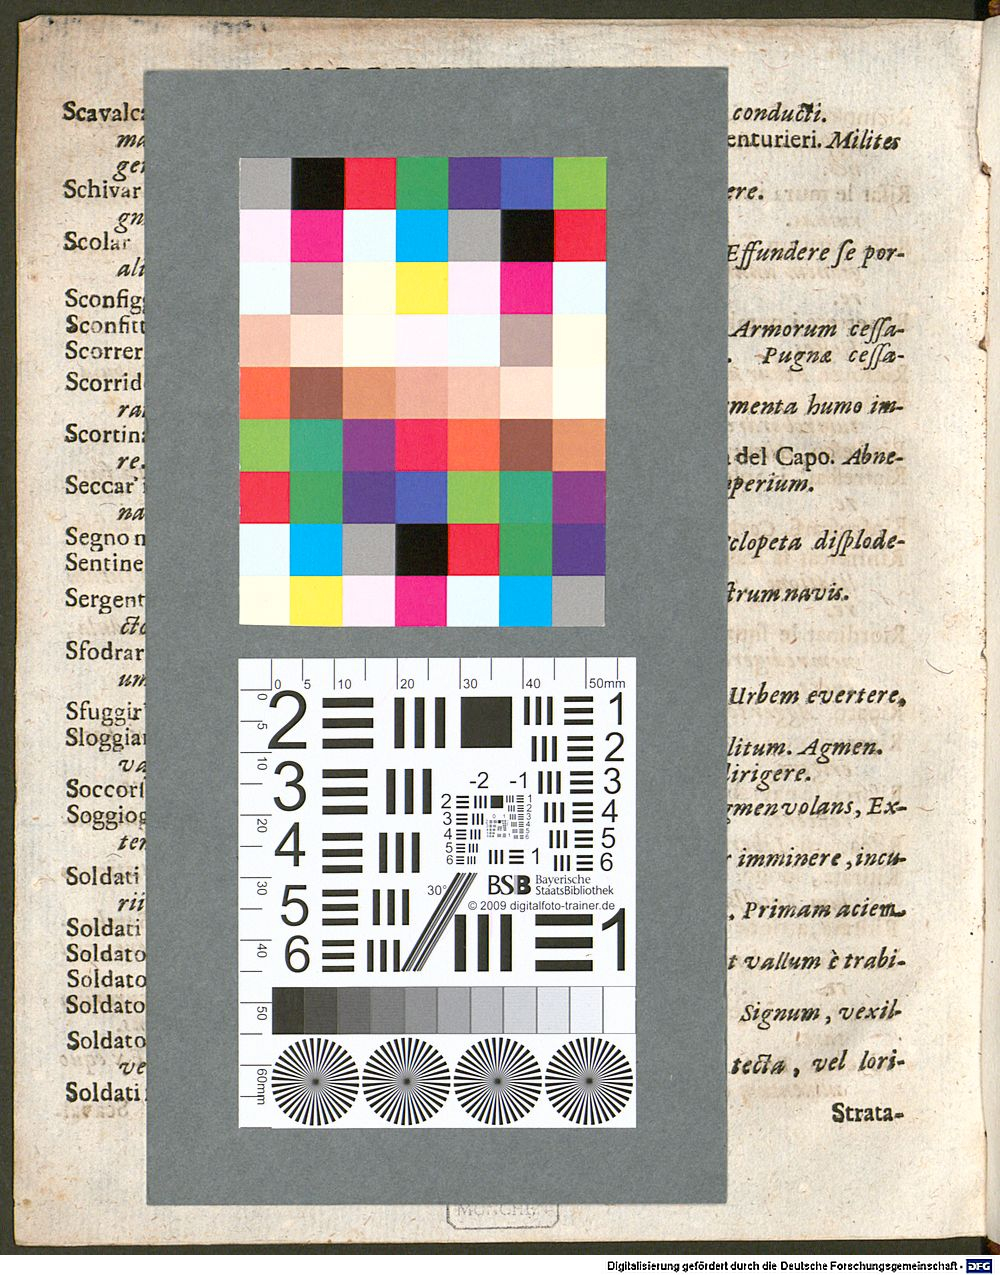 Scavalc
conducti.
ma
enturieri. Milites
ger
Schivar
ere.
gn
Scolar
Effundere ſe por-
ali
Sconfigg
Sconfitt
Armorum ceſſa-
Scorrer
. Pugnæ ceſſa-
Scorrid
ra
menta humo im-
Scortina
del Capo. Abne-
re.
Seccar' i
perium.
na
Segno n
clopeta diſplode-
Sentine
Sergent
ſtrum navis.
cto
Sfodrar
um
Urbem evertere,
Sfuggir'
Sloggiar
litum. Agmen.
va
dirigere.
Soccorſ
Soggiog
gmen volans, Ex-
ter
imminere, incu-
Soldati
rii
. Primam aciem
Soldati
Soldato
t vallum è trabi-
Soldato
Soldato
Signum, vexil-
Soldato
ve
tecta, vel lori-
Soldati
Strata-
0 5 10 20 30 40 50mm
0 5 10 20 30 40 50 60mm
2
3
4
5
6
1
2
3
4
5
6
-2 -1
2
3
4
5
6
1
2
3
4
5
6
1
30°
BSB Bayerische
StaatsBibliothek
© 2009 digitalfoto-trainer.de
1
MÜNCHEN
Digitalisierung gefördert durch die Deutsche Forschungsgemeinschaft - DFG